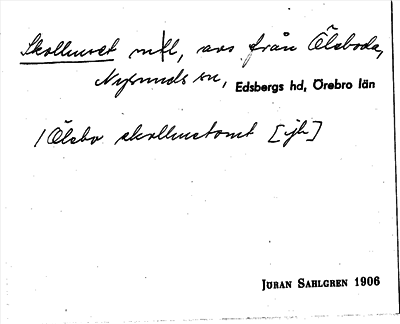 Skolhuset mfl, avs från Ölsboda,
Nysunds sn, Edsbergs hd, Örebro län
/Ölsbo skolhustomt [jb]
JÖRAN SAHLGREN 1906